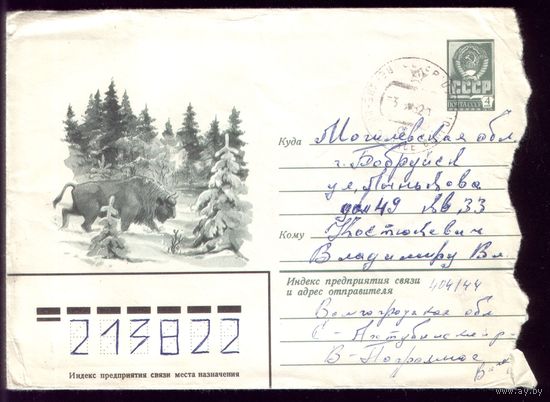 СССР
ПОЧТА СССР 4
Куда Могилевская обл
г. Бобруйск
ул. Лынькова
дом 49 кв 33
Кому Костюкевич
Владимиру Вл.
Индекс предприятия связи
и адрес отправителя 404144
Волгоградская обл
С-Ахтубинский р-
В-Погромное
213822
Индекс предприятия связи места назначения
www.ay.by